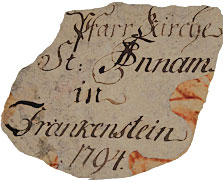 Pfarr Kirche
St: Annam
in
Frankenstein
1794.